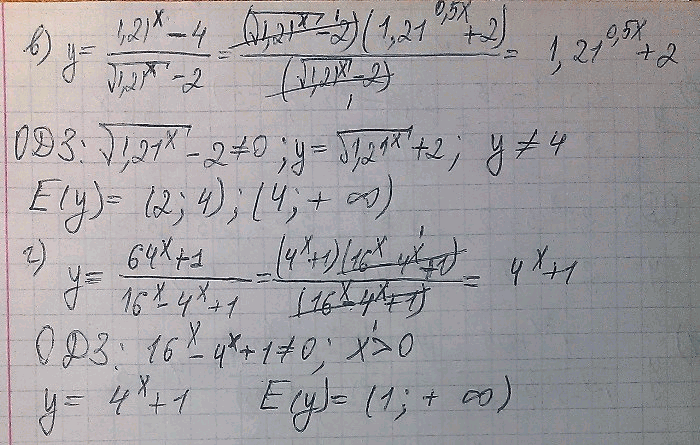 в) y = (1,21^x - 4)/(√(1,21^x) - 2) = ((√(1,21^x) - 2)(1,21^0,5x + 2))/((√(1,21^x) - 2)) = 1,21^0,5x + 2
ОДЗ: √(1,21^x) - 2 ≠ 0; y = √(1,21^x) + 2; y ≠ 4
E(y) = (2; 4); (4; + ∞)
г) y = (64^x + 1)/(16^x - 4^x + 1) = ((4^x + 1)(16^x - 4^x + 1))/((16^x - 4^x + 1)) = 4^x + 1
ОДЗ: 16^x - 4^x + 1 ≠ 0; x > 0
y = 4^x + 1 E(y) = (1; + ∞)